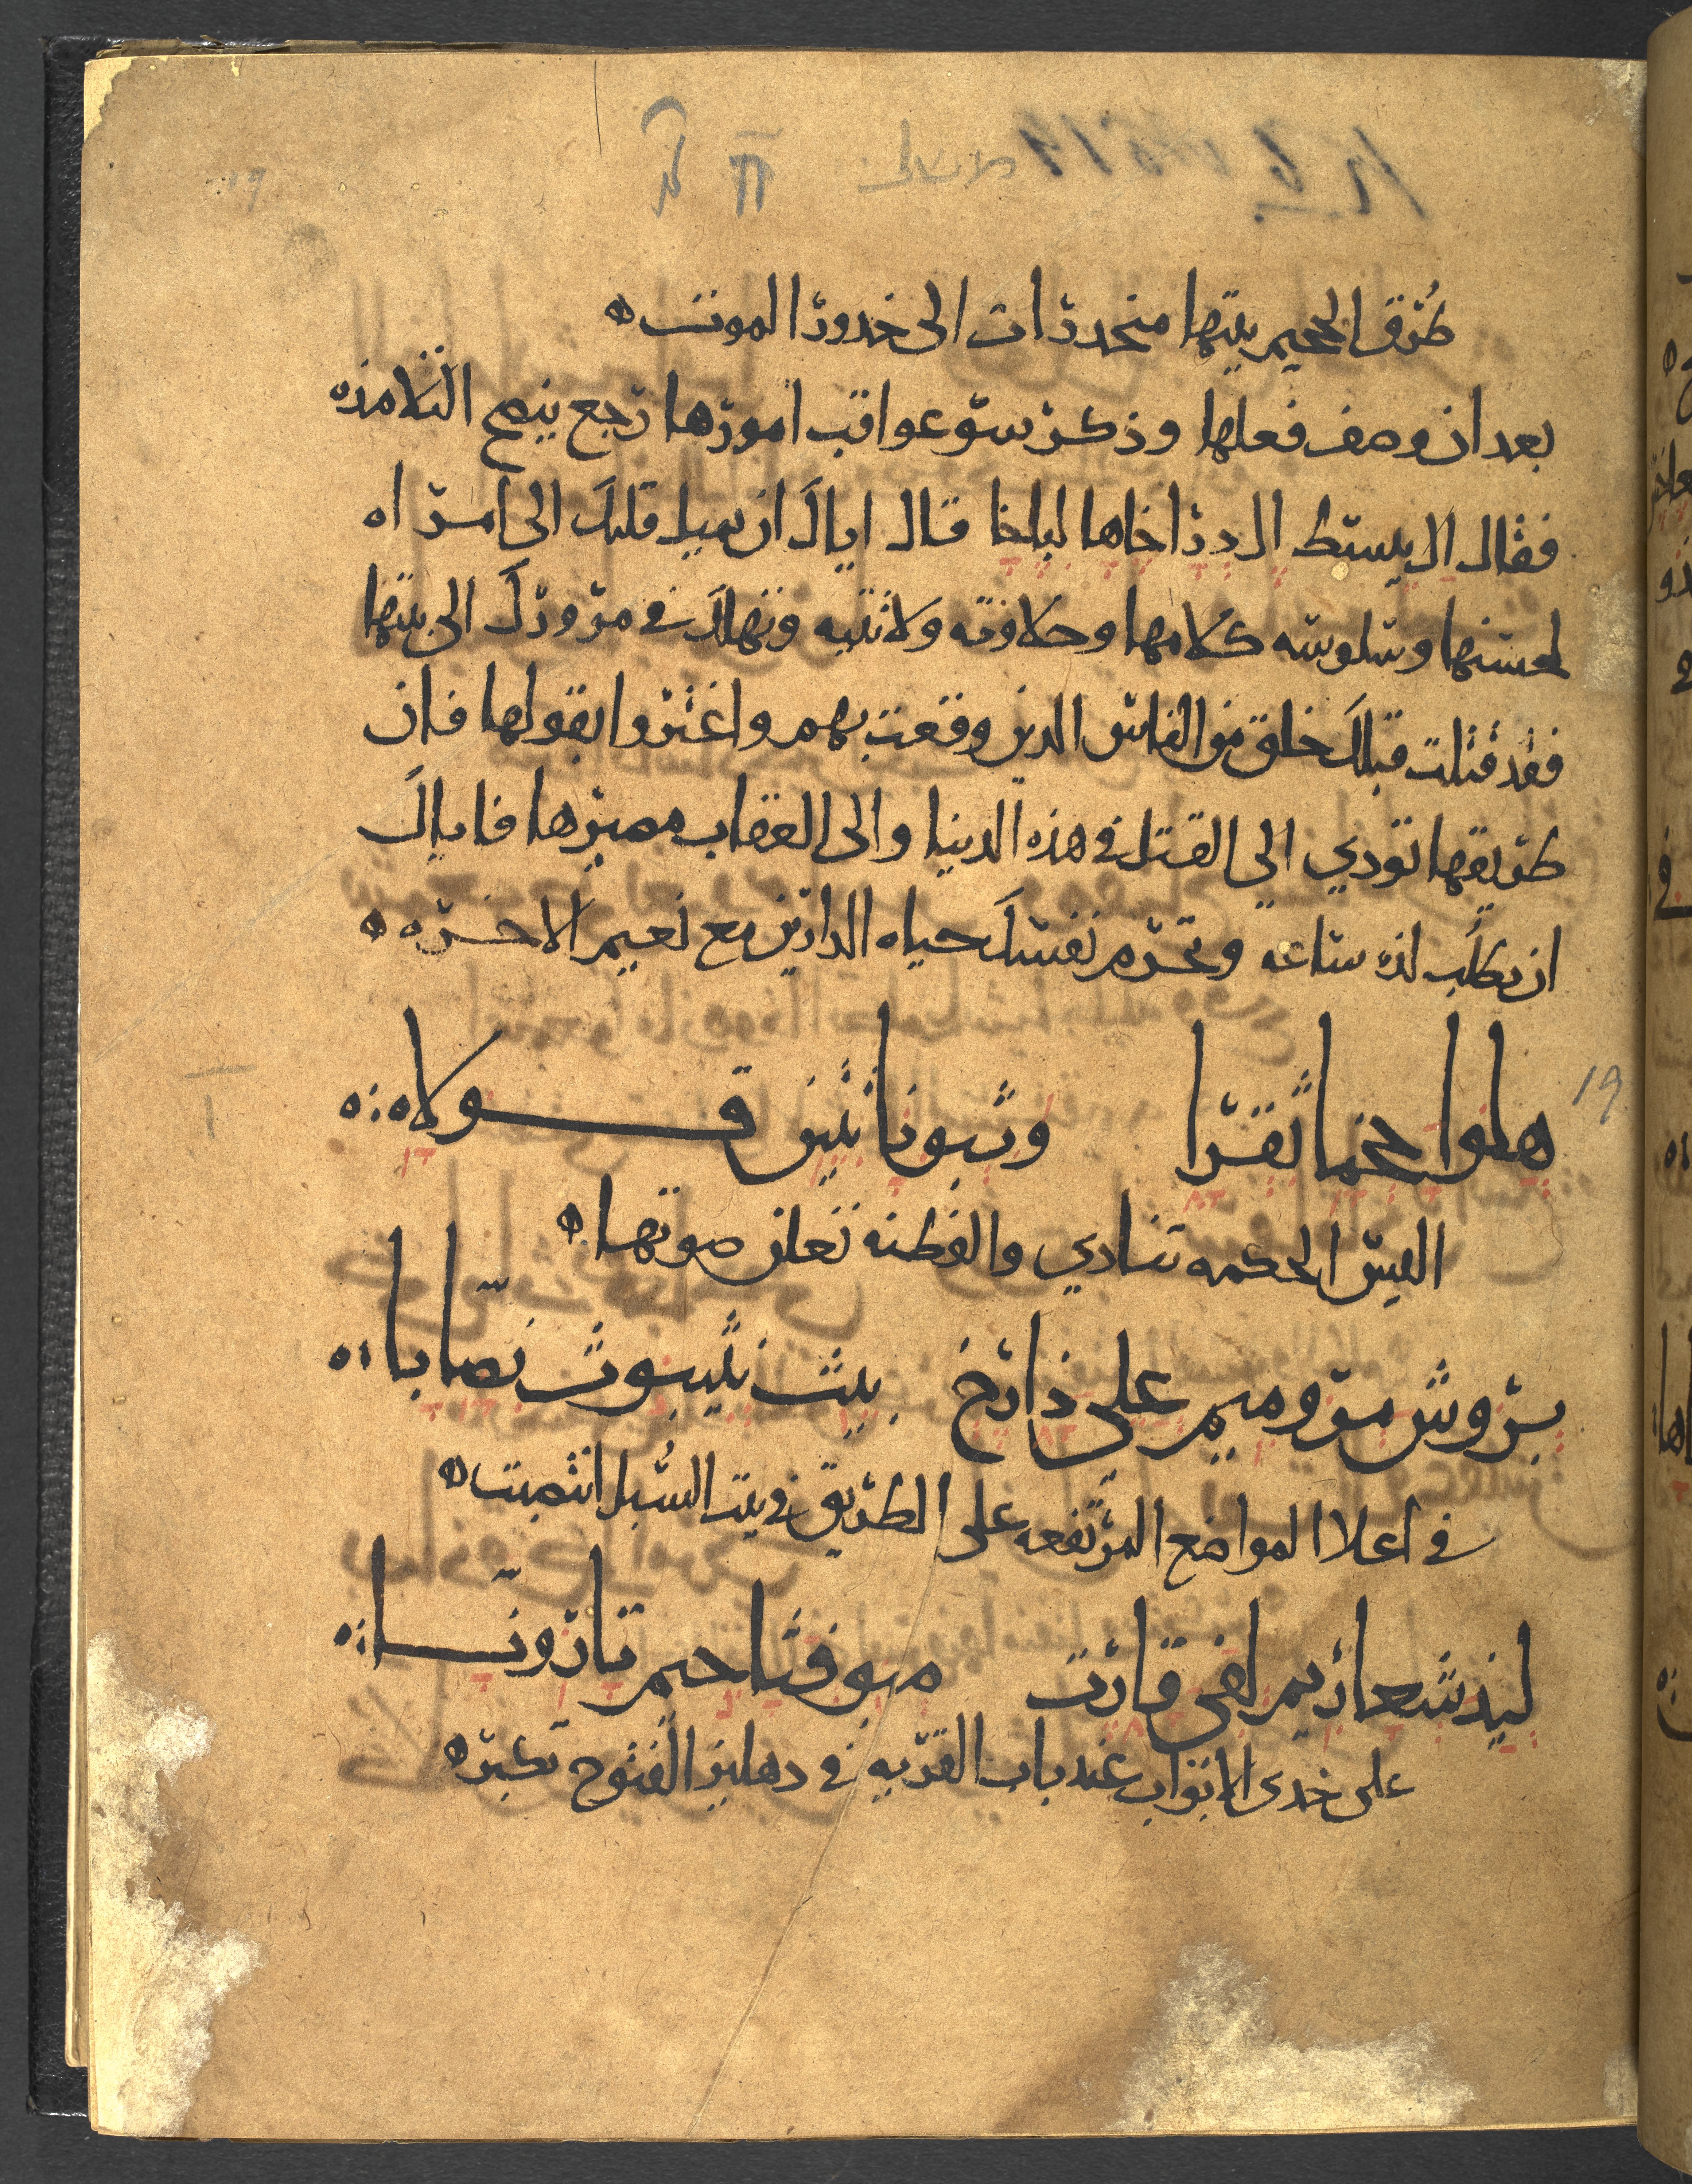 طُرق الجحيم بيتها منحدرات الى خدور الموت ه
بعد ان وصف فعلها وذكر سو عواقب امورها رجع ينصح التلامذه
فقال ال يسط ال درا خاها ليلخا قال اياك ان يميل قلبك الى امراه
لحسنها وسلوسه كلامها وحلاوته ولا تتيه وتهلك في مرورك الى بيتها
فقد قتلت قبلك خلق من الناس الدين وقعت بهم واغتروا بقولها فان
طريقها تودي الى القتل في هذه الدنيا والى العقاب مصيرها فاياك
ان تطلب لذه ساعه وتحرم نفسك حياه الدارين مع نعيم الاخره ه
هلوا حخما ثقرا وثبونا تتين قولاه
اليس الحكمه تنادي والفطنه تعلن صوتها ه
بروش مروميم على ذارخ بيث نثيبوث نصابا
في اعلا المواضع المرتفعه على الطريق في بيت السُبل انتصبت ه
ليذ شعاريم لفي قارت مبوفثاحيم تارونا
على خدى الابواب عند باب القريه في دهليز الفتوح تكبره
19